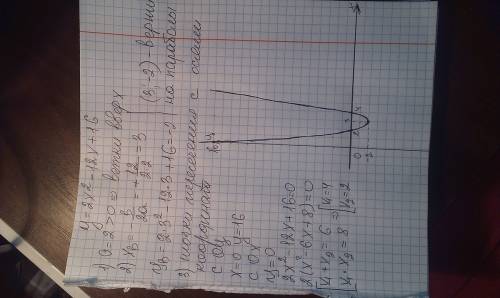 y=2x²-12x+16
1) a=2>0 ⇒ ветки вверх
2) xв=-b/2a=+12/2·2=3
yв=2·3²-12·3+16=-2
(3;-2)-верши
на параболы
3) точки пересечения с осями
координат
с Oy
x=0 y=16
с Ox
y=0
2x²-12x+16=0
2(x²-6x+8)=0
[x₁+x₂=6 ⇒ [x₁=4
[x₁·x₂=8 [x₂=2
16
y
0
2
3
4
x
-2